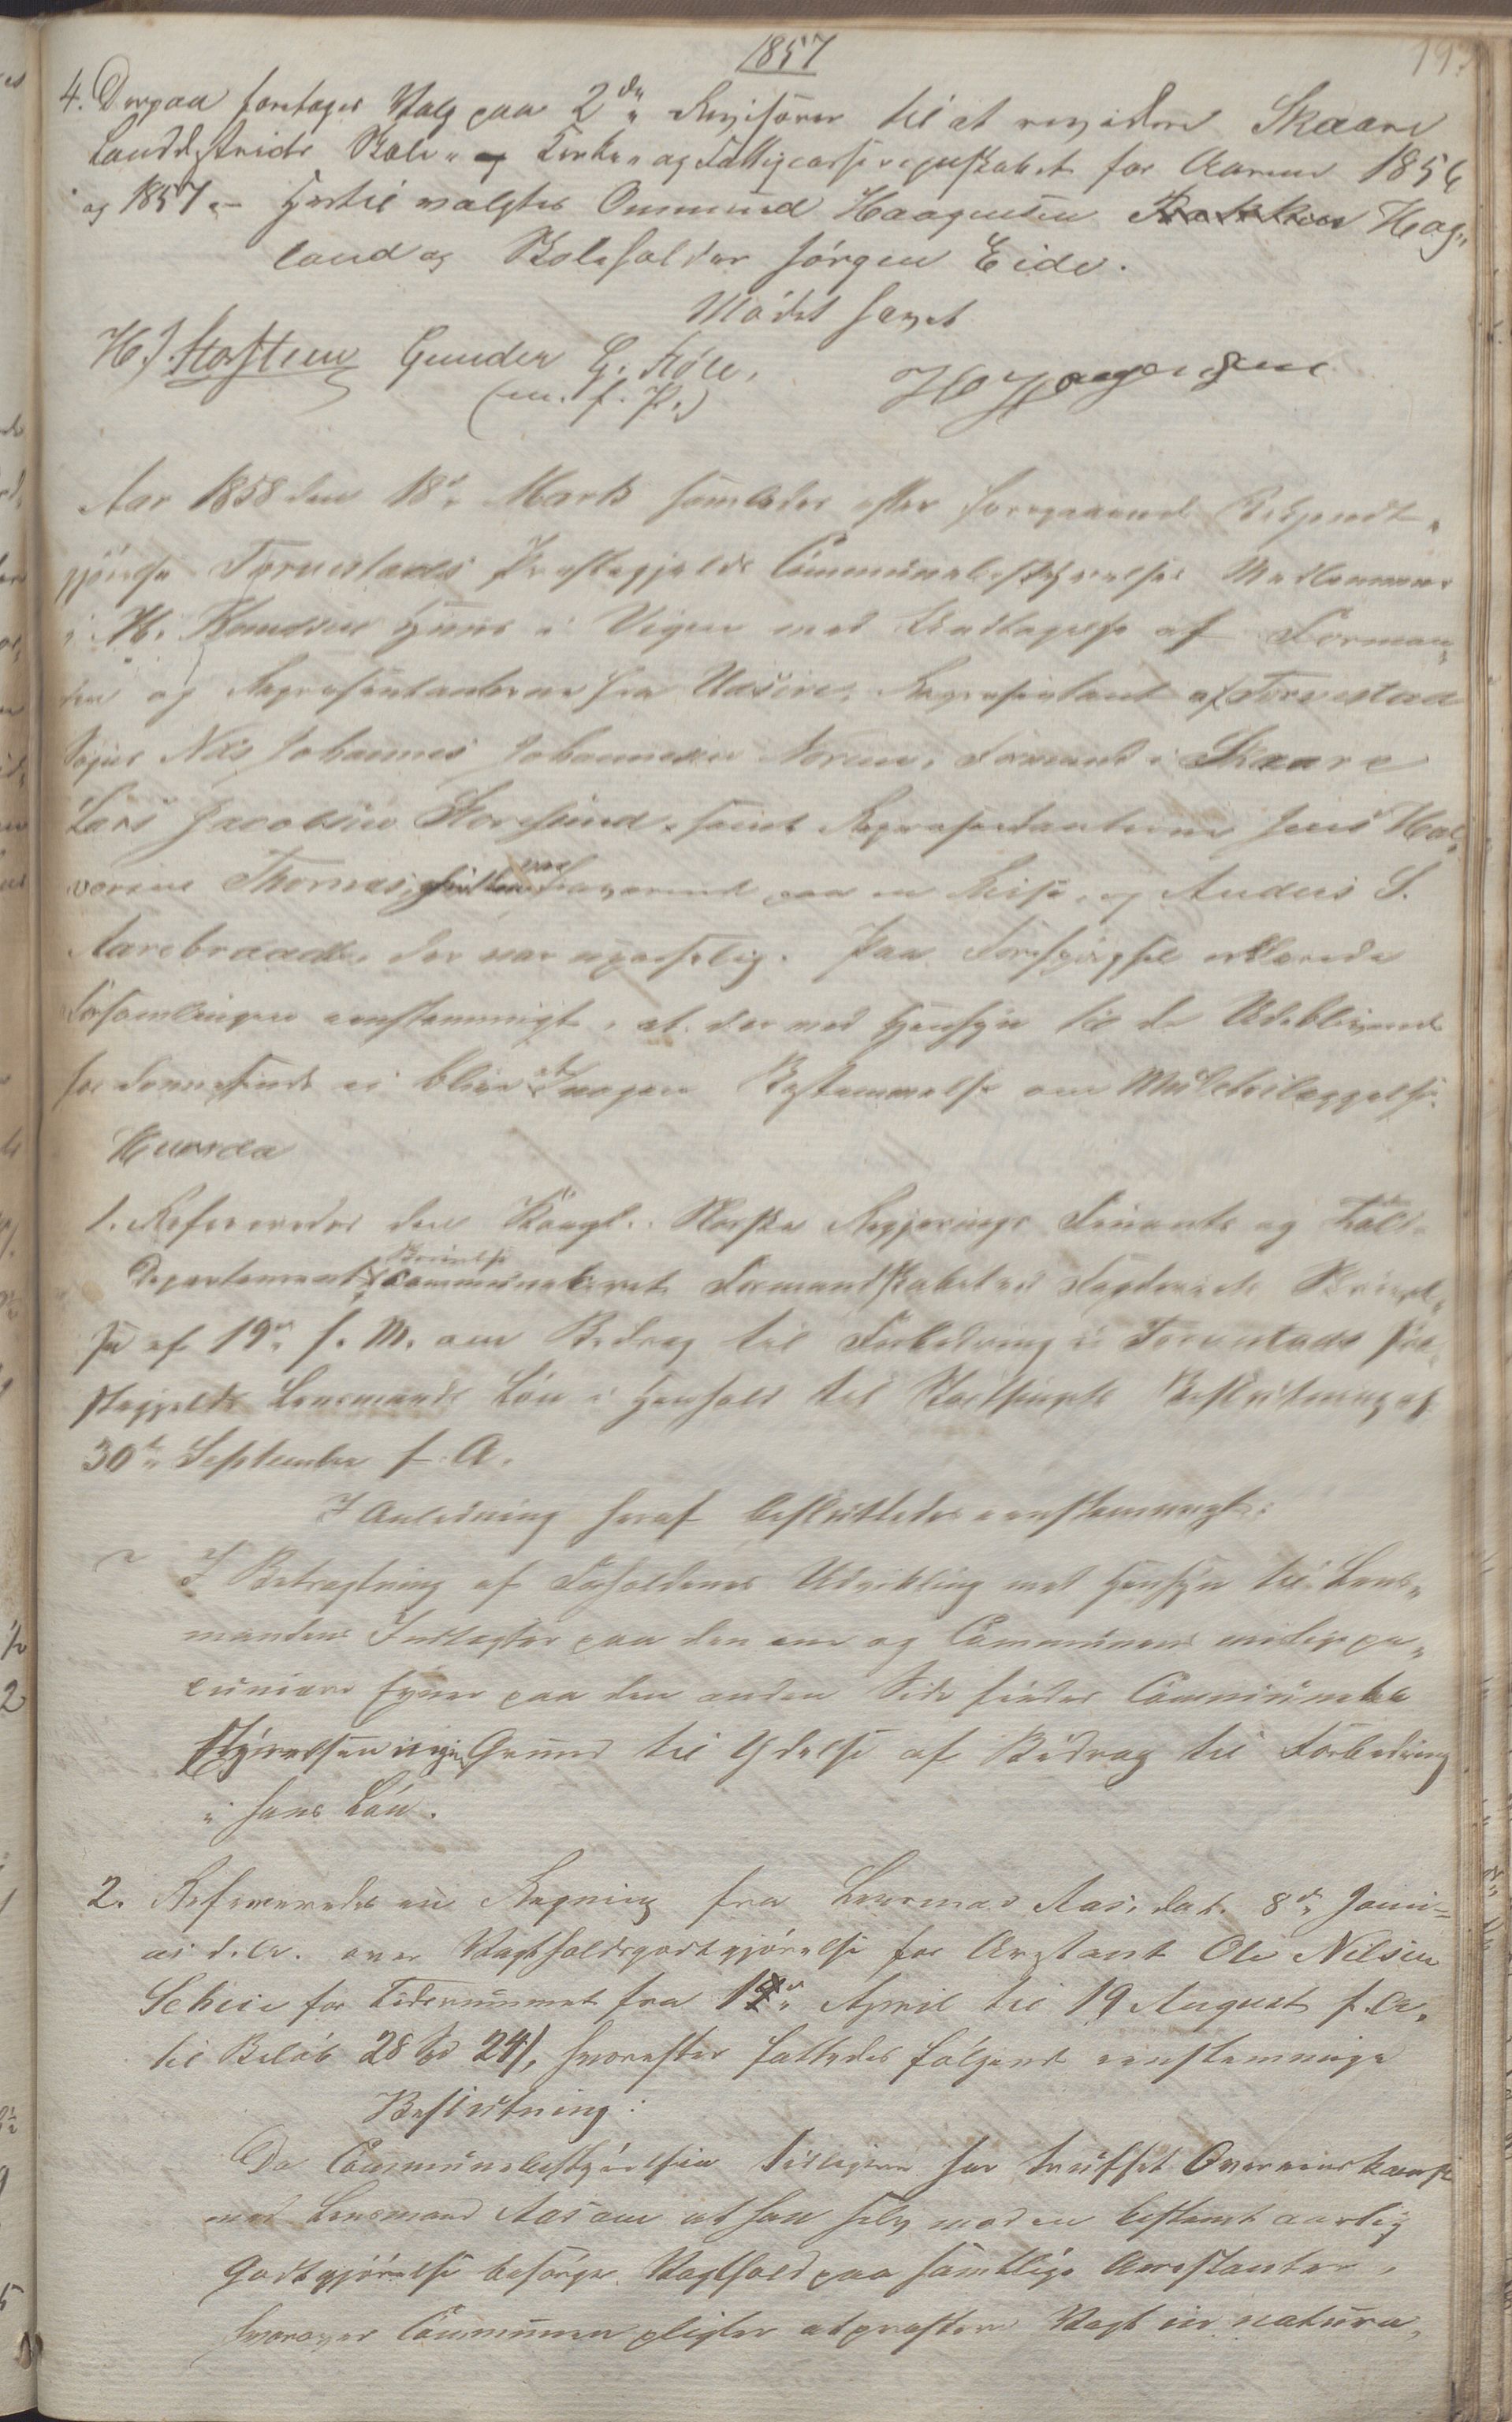 1857
193
4. Derpaa foretoges Valg paa 2de Revisorer til at revidere Skaare
Landdistricts Skole- og Kirke- og Fattigcasseregnskabet for Aarene 1856
og 1857. – Hertil valgtes Ommund Haagensen Hag„
land og Skoleholder Jørgen Eide.
Mødet hævet
H. J. Staksteen Gunder G. Støle,
(m. f. P.)
Aar 1858 den 18de Marts samledes efter foregaaende Bekjendt„
gjørelse Torvestads Præstegjelds Communebestyrelses Medlemmer
i H. Knudsens Huus i Vigen med Undtagelse af Forman„
den og Repræsentanterne fra Udsire, Repræsentant af Torvestad
Sogn Nils Johannes Johannesen Noreim, Formand i Skaare
Lars Jacobsen Storesund, samt Repræsentanterne Jens Hal„
vorsen Thornes, var fraværende paa en Reise, og Anders S.
Aarebraadt, der var upasselig. Paa Forespørgsel erklærede
Forsamlingen eenstemmigt, at der med Hensyn til de Udeblivende
for denne sinde ei bliver at tage nogen Bestemmelse om Mulctilæggelse.
Hvorda
1. Refereredes den Kongl. Norske Regjerings Finants og Told
Departements Skrivelse communiceret Formandskabet ved Fogderiets Skrivel„
se af 19de f. M. om Bidrag til Forbedring i Torvestads Præ„
stegjelds Lensmands Løn i Henhold til Storthingets Beslutning af
30te September f. A.
I Anledning heraf besluttedes eenstemmigt:
I Betragtning af Forholdenes Udvikling med Hensyn til Lens„
mandens Indtægter paa den ene og Communens pe„
cuniære Evner paa den anden Side finder Commune
styrelsen ingen Grund til Ydelse af Bidrag til Forbedring
i hans Løn.
2. Refereredes en Regning fra Lensmand Aas, dat. 8de Janu=
ar d. A. over Vagtholdsgodtgjørelse for Arrestant Ole Nilsen
Scheie for Tidsrummet fra 12te April til 19 August f. A.
til Beløb 28 Spd 24 s, hvorefter fattedes følgende eenstemmige
Beslutning:
Da Communebestyrelsen tidligere har truffet Overeenskomst
med Lensmand Aas om at han selv mod en bestemt aarlig
Godtgjørelse besørger Vagthold paa samtlige Arrestanter,
hvorover Communen pligter at præstere Vagt in natura,